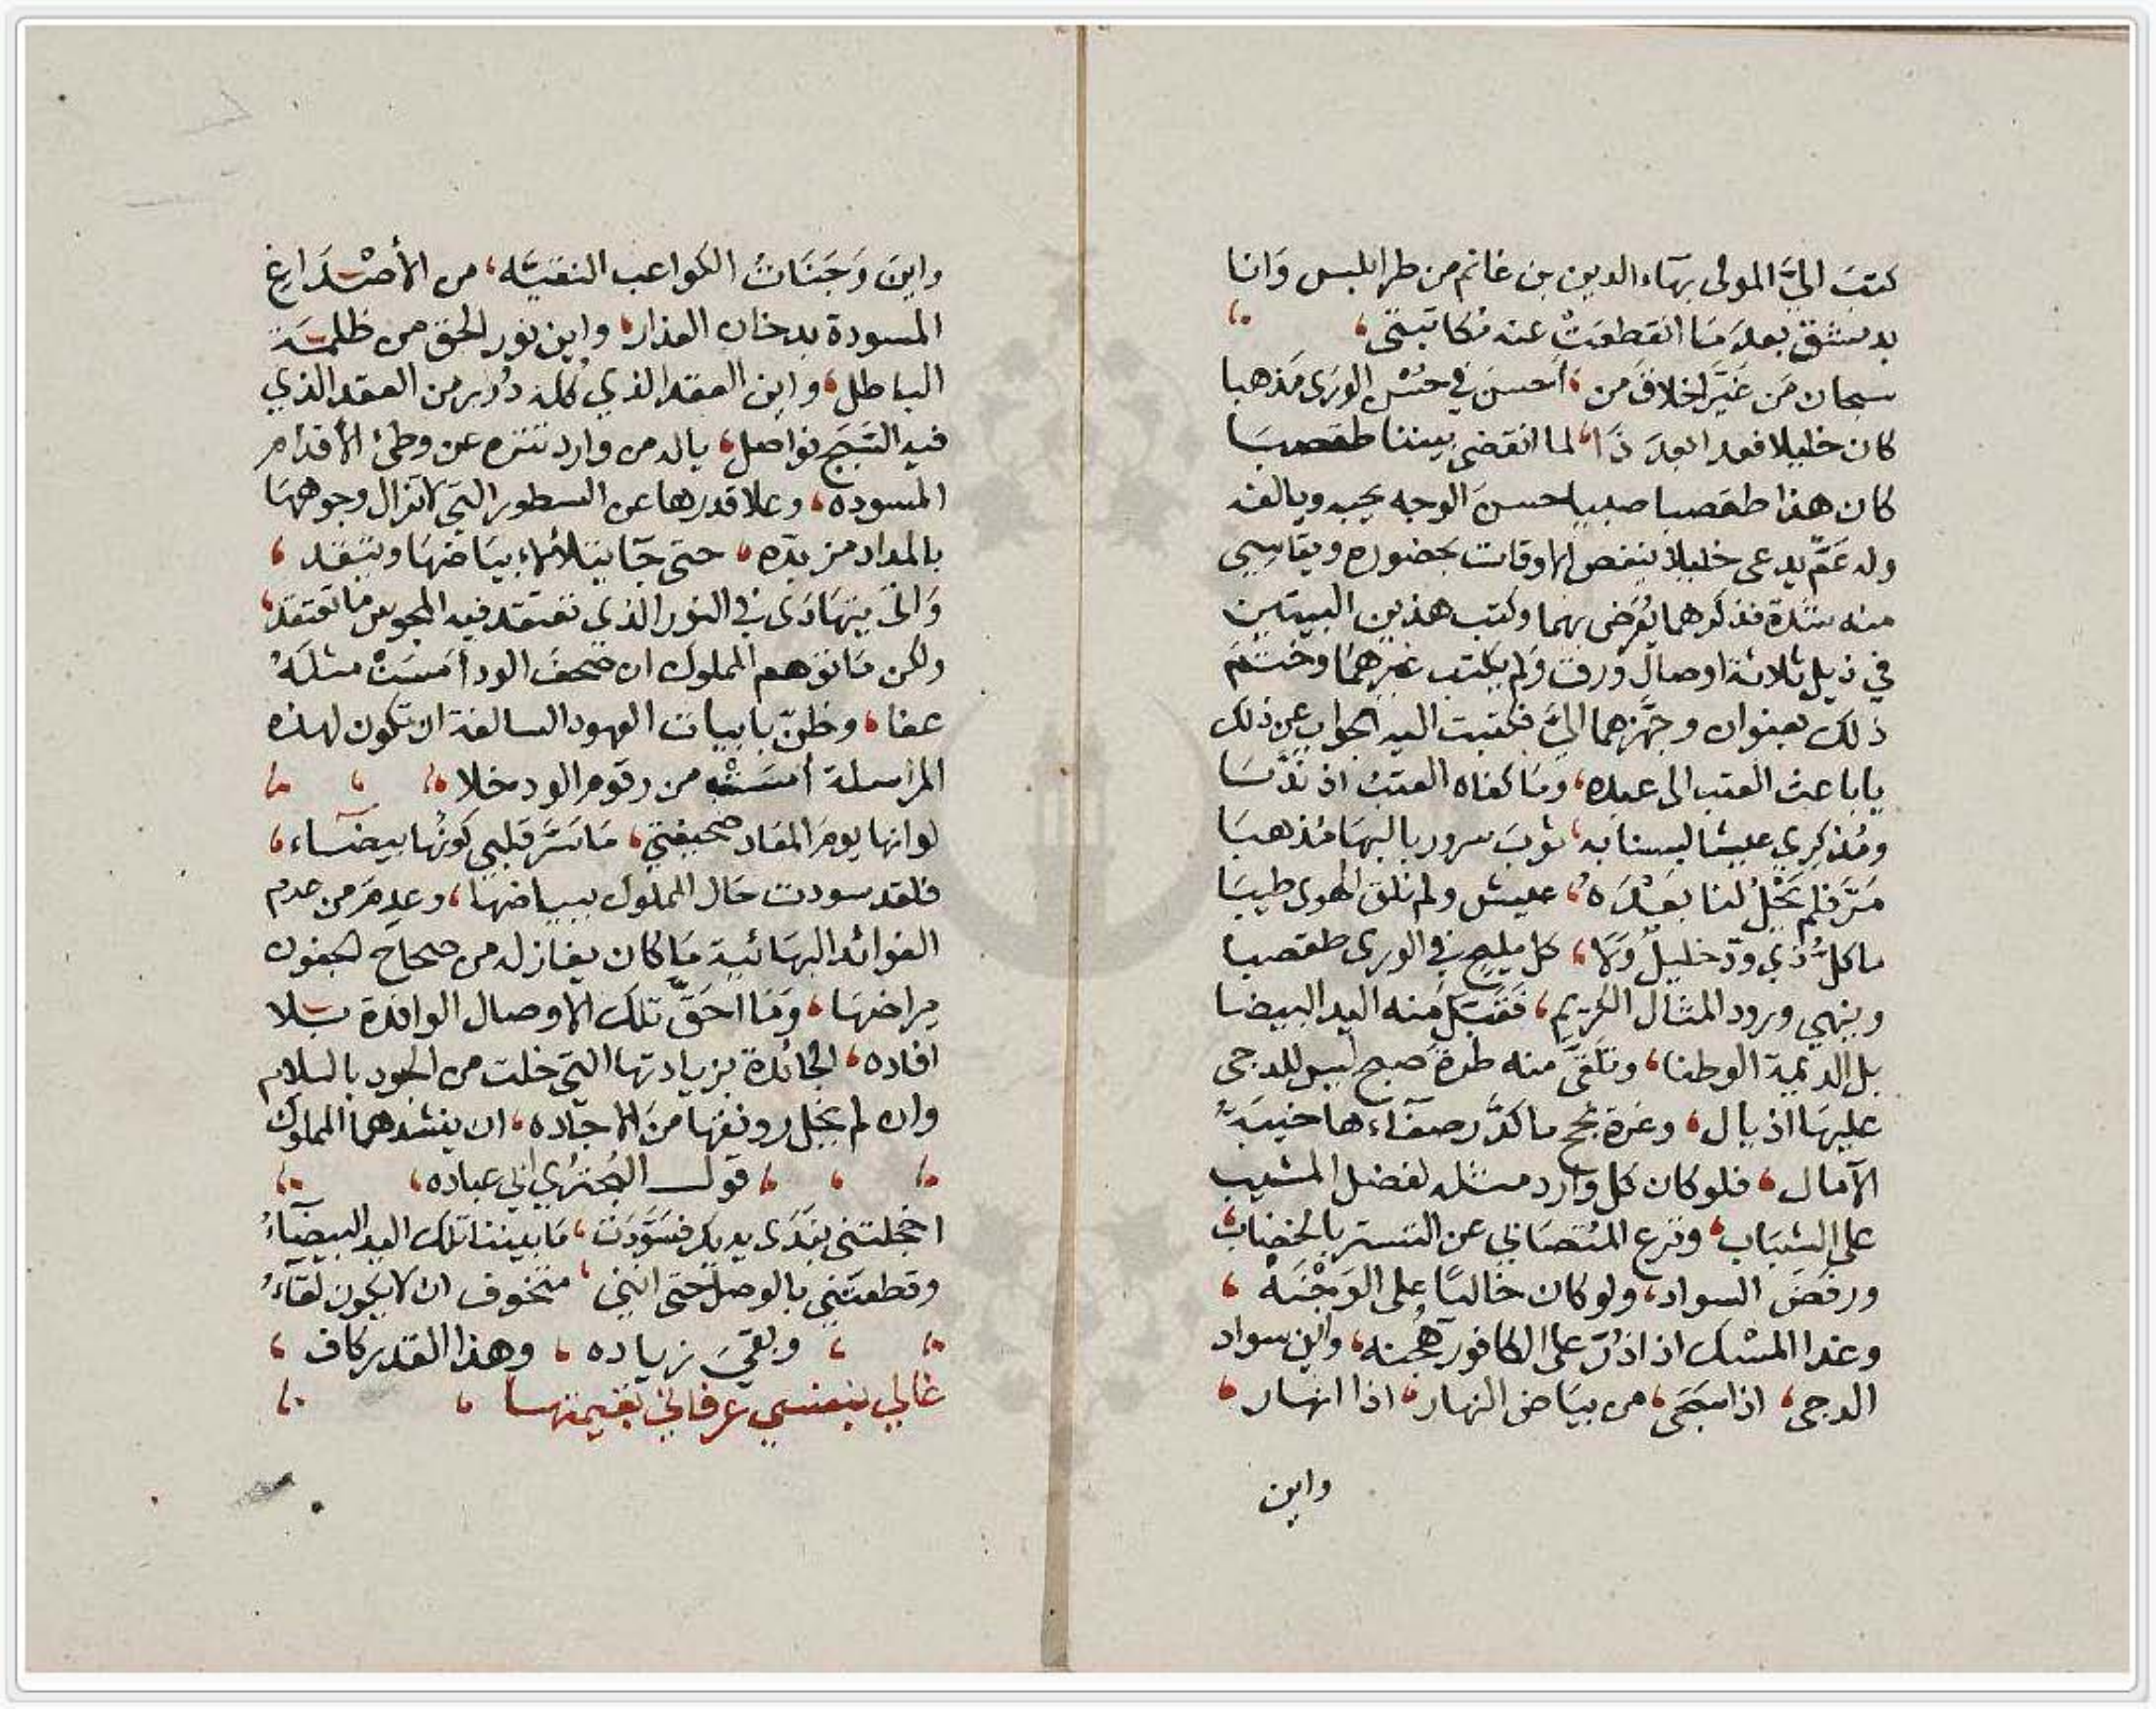 كتب اليَّ المولى بهاء الدين بن غانم من طرابلس وانا
بدمشق بعد ما انقطعت عنه مكاتبتي،
سبحان من غيّر اخلاق من، احسن في حسن الورى مذهبا
كان خليلا فغدا بعد ذا، لما انقضى بيننا طقصبا
كان هذا طقصبا صبيا حسن الوجه يحبه ويالفه
وله عَمّ يدعى خليلا ينغص الاوقات بحضوره ويقاسي
منه شدة فذكرهما يُعرّض بهما وكتب هذين البيتين
في ذيل ثلاثة اوصال ورق ولم يكتب غيرهما وختم
ذلك بعنوان وجهّزهما اليّ فكتبت اليه الجواب عن ذلك
يا باعث العتب الى عبده، وما كفاه العتب اذ ندّبا
ومُذكري عيشا لبسنا به، ثوب سرور بالبها مُذهبا
مَرَّ فلم يَحْلُ لنا بعده، عيش ولم نلق الهوى طيبا
ما كلُّ ذي ودّ خليلٌ ولا، كل مليح في الورى طقصبا
وينهي ورود المثال الكريم، فقبّل منه اليد البيضا
بل الديمة الوطفا، وتلقّى منه طرة صبح ليس للدجى
عليها اذيال، وغرة نجح ما كدّر صفاءها خيبة
الآمال، فلو كان كل وارد مثله لفضل المشيب
على الشباب، ونزع المتصابي عن التستر بالخضاب،
ورفض السواد، ولو كان خالا على الوجْنه،
وغدا المسك اذا ذرّ على الكافور هُجنه، واين سواد
الدجى، اذا سجى، من بياض النهار، اذا انهار،
واين
واين وَجَنَاتُ الكواعب النقيّه، من الأصْدَاغ
المسودة بدخان العذار، واين نور الحق من ظلمة
الباطل، واين العقد الذي كله دُرر من العقد الذي
فيه السَّبَج فواصل، يا له من وارد تنزه عن وطئ الأقدام
المسوده، وعلا قدرها عن السطور التي لا تزال وجوهها
بالمداد مربدّه، حتى جا يتلألأ بياضها ويتقد،
وَاتى يتهادى في النور الذي تعتقد فيه المجوس ما تعتقد،
ولكن ما توهم المملوك ان صحف الود امسَتْ مثله
عفا، وظنّ بابيات العهود السالفة ان تكون لهذه
المراسلة امست من رقوم الود خلا،
لو انها يوم المعاد صحيفتي، مَا سَرّ قلبي كونُها بيضاء،
فلقد سودت حال المملوك ببياضها، وعدم من عدم
الفوائد البهائية مَا كان يغازله من صحاح الجفون
مراضها، وما احقّ تلك الاوصال الوافدة بلا
افاده، الجائدة بزيادتها التي خلت من الجود بالسلام
وان لم يخل رونقها من الاجاده، ان ينشدهما المملوك
قول البُحتري ابي عباده،
اخجلتني بندى يديك فسَوّدَت، ما بيننا تلك اليد البيضاءُ
وقطعتني بالوصل حتى انني، متخوف ان لا يكون لقاءُ
وبقي زياده، وهذا القدر كاف،
غالي بنفسي عرفاني بقيمتها